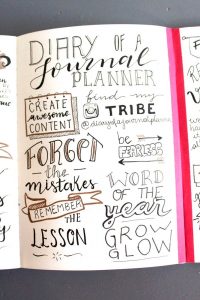 DIARY OF A
Journal
PLANNER
CREATE
AWESOME
CONTENT
find my
TRIBE
@diaryofajournalplanner
FORGET
the
mistakes
REMEMBER
THE
LESSON
be
FEARLESS
WORD
OF THE
year
GROW
GLOW